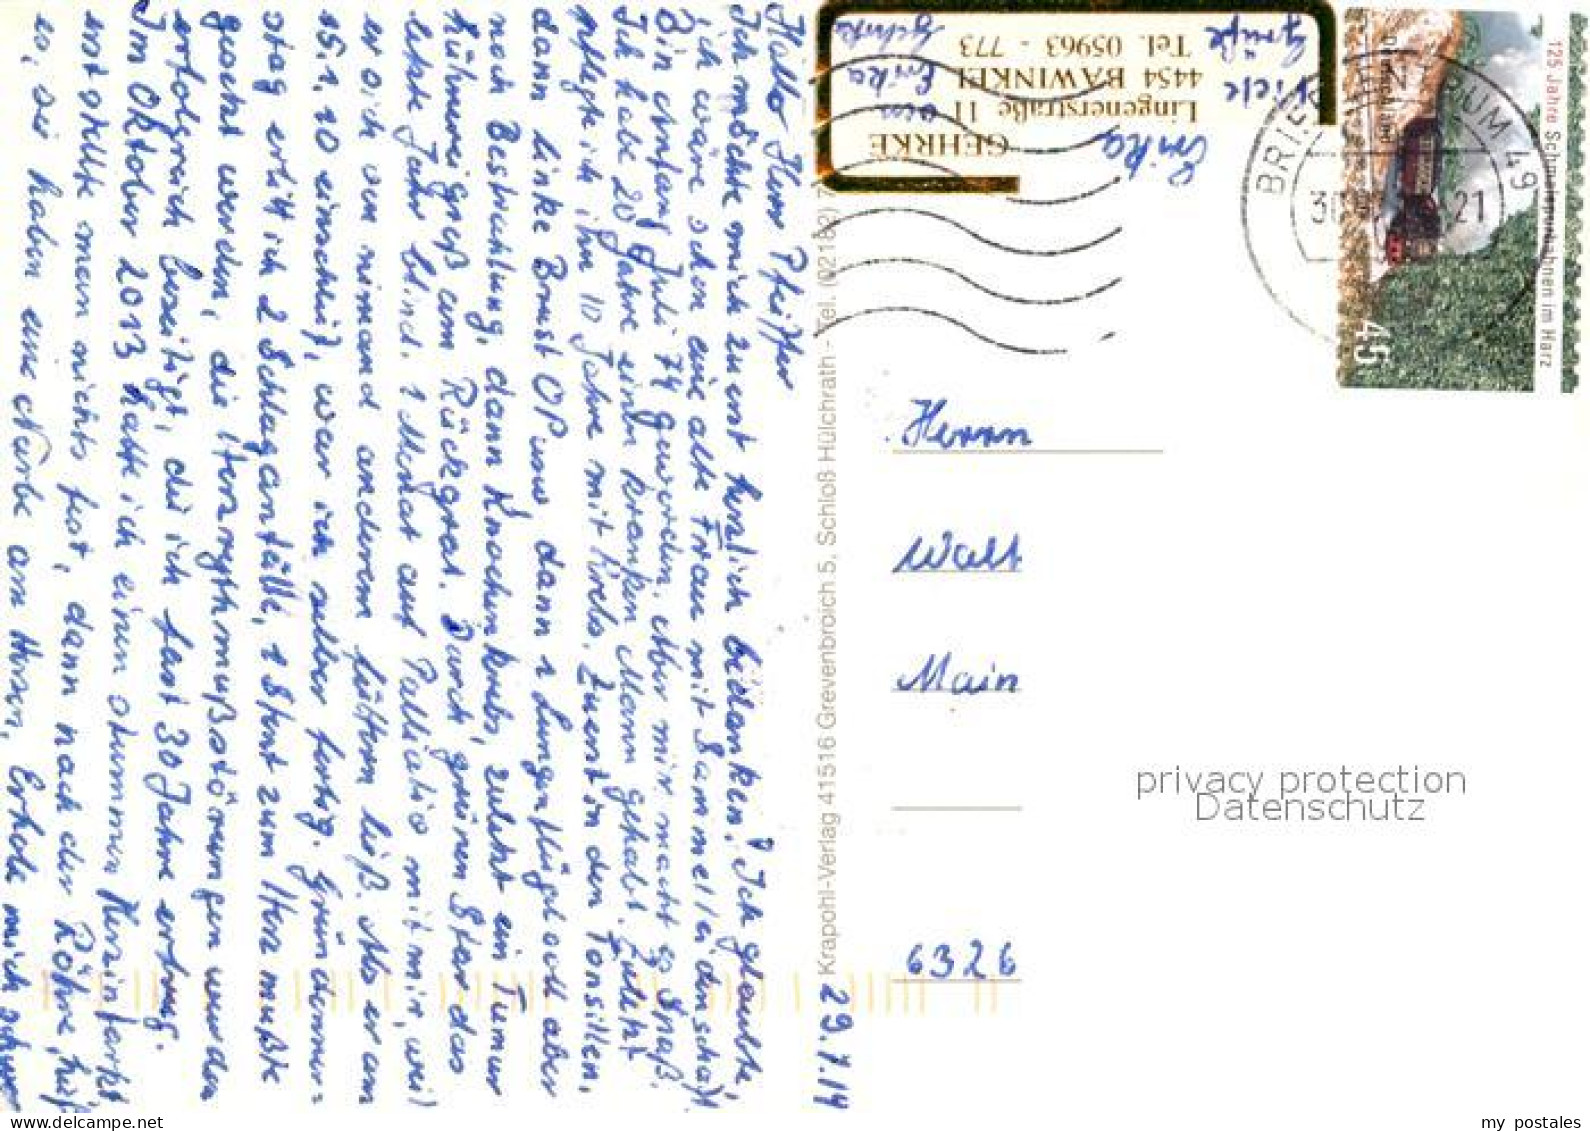 Hallo Herr Pfeiffer
Ich möchte mich zuerst herzlich bedanken. Ich glaubte,
ich wäre schon eine alte Frau mit Sammelleidenschaft.
Bin Anfang Juli 74 geworden. Aber mir macht es Spaß.
Ich habe 20 Jahre einen kranken Mann gehabt. Zuletzt
pflegte ich ihn 10 Jahre mit Krebs. Zuerst an den Tonsillen,
dann linke Brust OP usw, dann 1 Lungenflügel voll aber
noch Bestrahlung, dann Knochenkrebs, zuletzt ein Tumor
hühnereigroß am Rückgrat. Durch grünen Star das
letzte Jahr blind. 1 Monat auf Palliativ mit mir, weil
er sich von nimand anderem füttern ließ. Als er am
15.1.10 einschlief, war ich selber fertig. Gründonner=
stag erlitt ich 2 Schlaganfälle, 1 Stent zum Herz mußte
gesetzt werden, die Herzrythmußstörungen wurden
erfolgreich beseitigt, die ich fast 30 Jahre ertrug.
Im Oktober 2013 hatte ich einen stummen Herzinfarkt
erst stellte man nichts fest, dann nach der Röhre, hieß
es, sie haben eine Narbe am Herzen. Erhole mich
29.7.14
Krapohl-Verlag 41516 Grevenbroich 5, Schloß Hülchrath - Tel. (02182) 7
GEHRKE
Lingenerstraße 11
4454 BAWINKEL
Tel. 05963 - 773
Viele
Grüße
von
Erika
Gehrke
Erika
BRIEFZENTRUM 49
21
125 Jahre Schmalspurbahnen im Harz
Deutschland
45
Herrn
Walt
Main
6326
privacy protection
Datenschutz
www.delcampe.net
my_postales